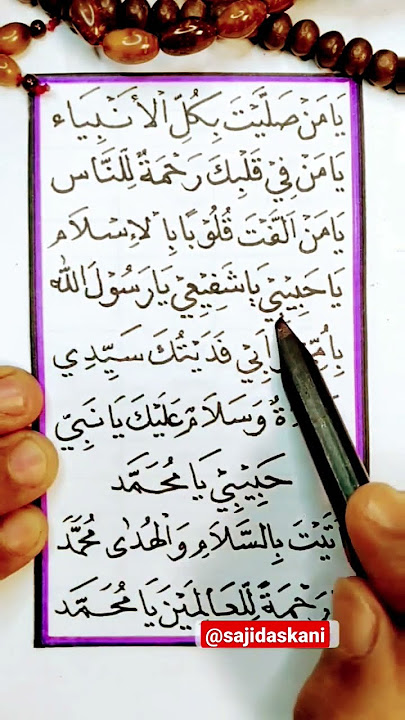 يَا مَنْ صَلَّيْتَ بِكُلِّ الْأَنْبِيَاء
يَا مَنْ فِيْ قَلْبِكَ رَحْمَةٌ لِّلنَّاس
يَا مَنْ اَلَّفْتَ قُلُوْبًا بِالْاِسْلَام
يَا حَبِيْبِيْ يَا شَفِيْعِيْ يَا رَسُوْلَ اللّٰه
فَدَيْتُكَ سَيِّدِي
وَسَلَامٌ عَلَيْكَ يَا نَبِيّ
حَبِيْبِيْ يَا مُحَمَّد
بِالسَّلَامِ وَالْهُدٰى مُحَمَّد
رَحْمَةً لِّلْعَالَمِيْنَ يَا مُحَمَّد
@sajidaskani